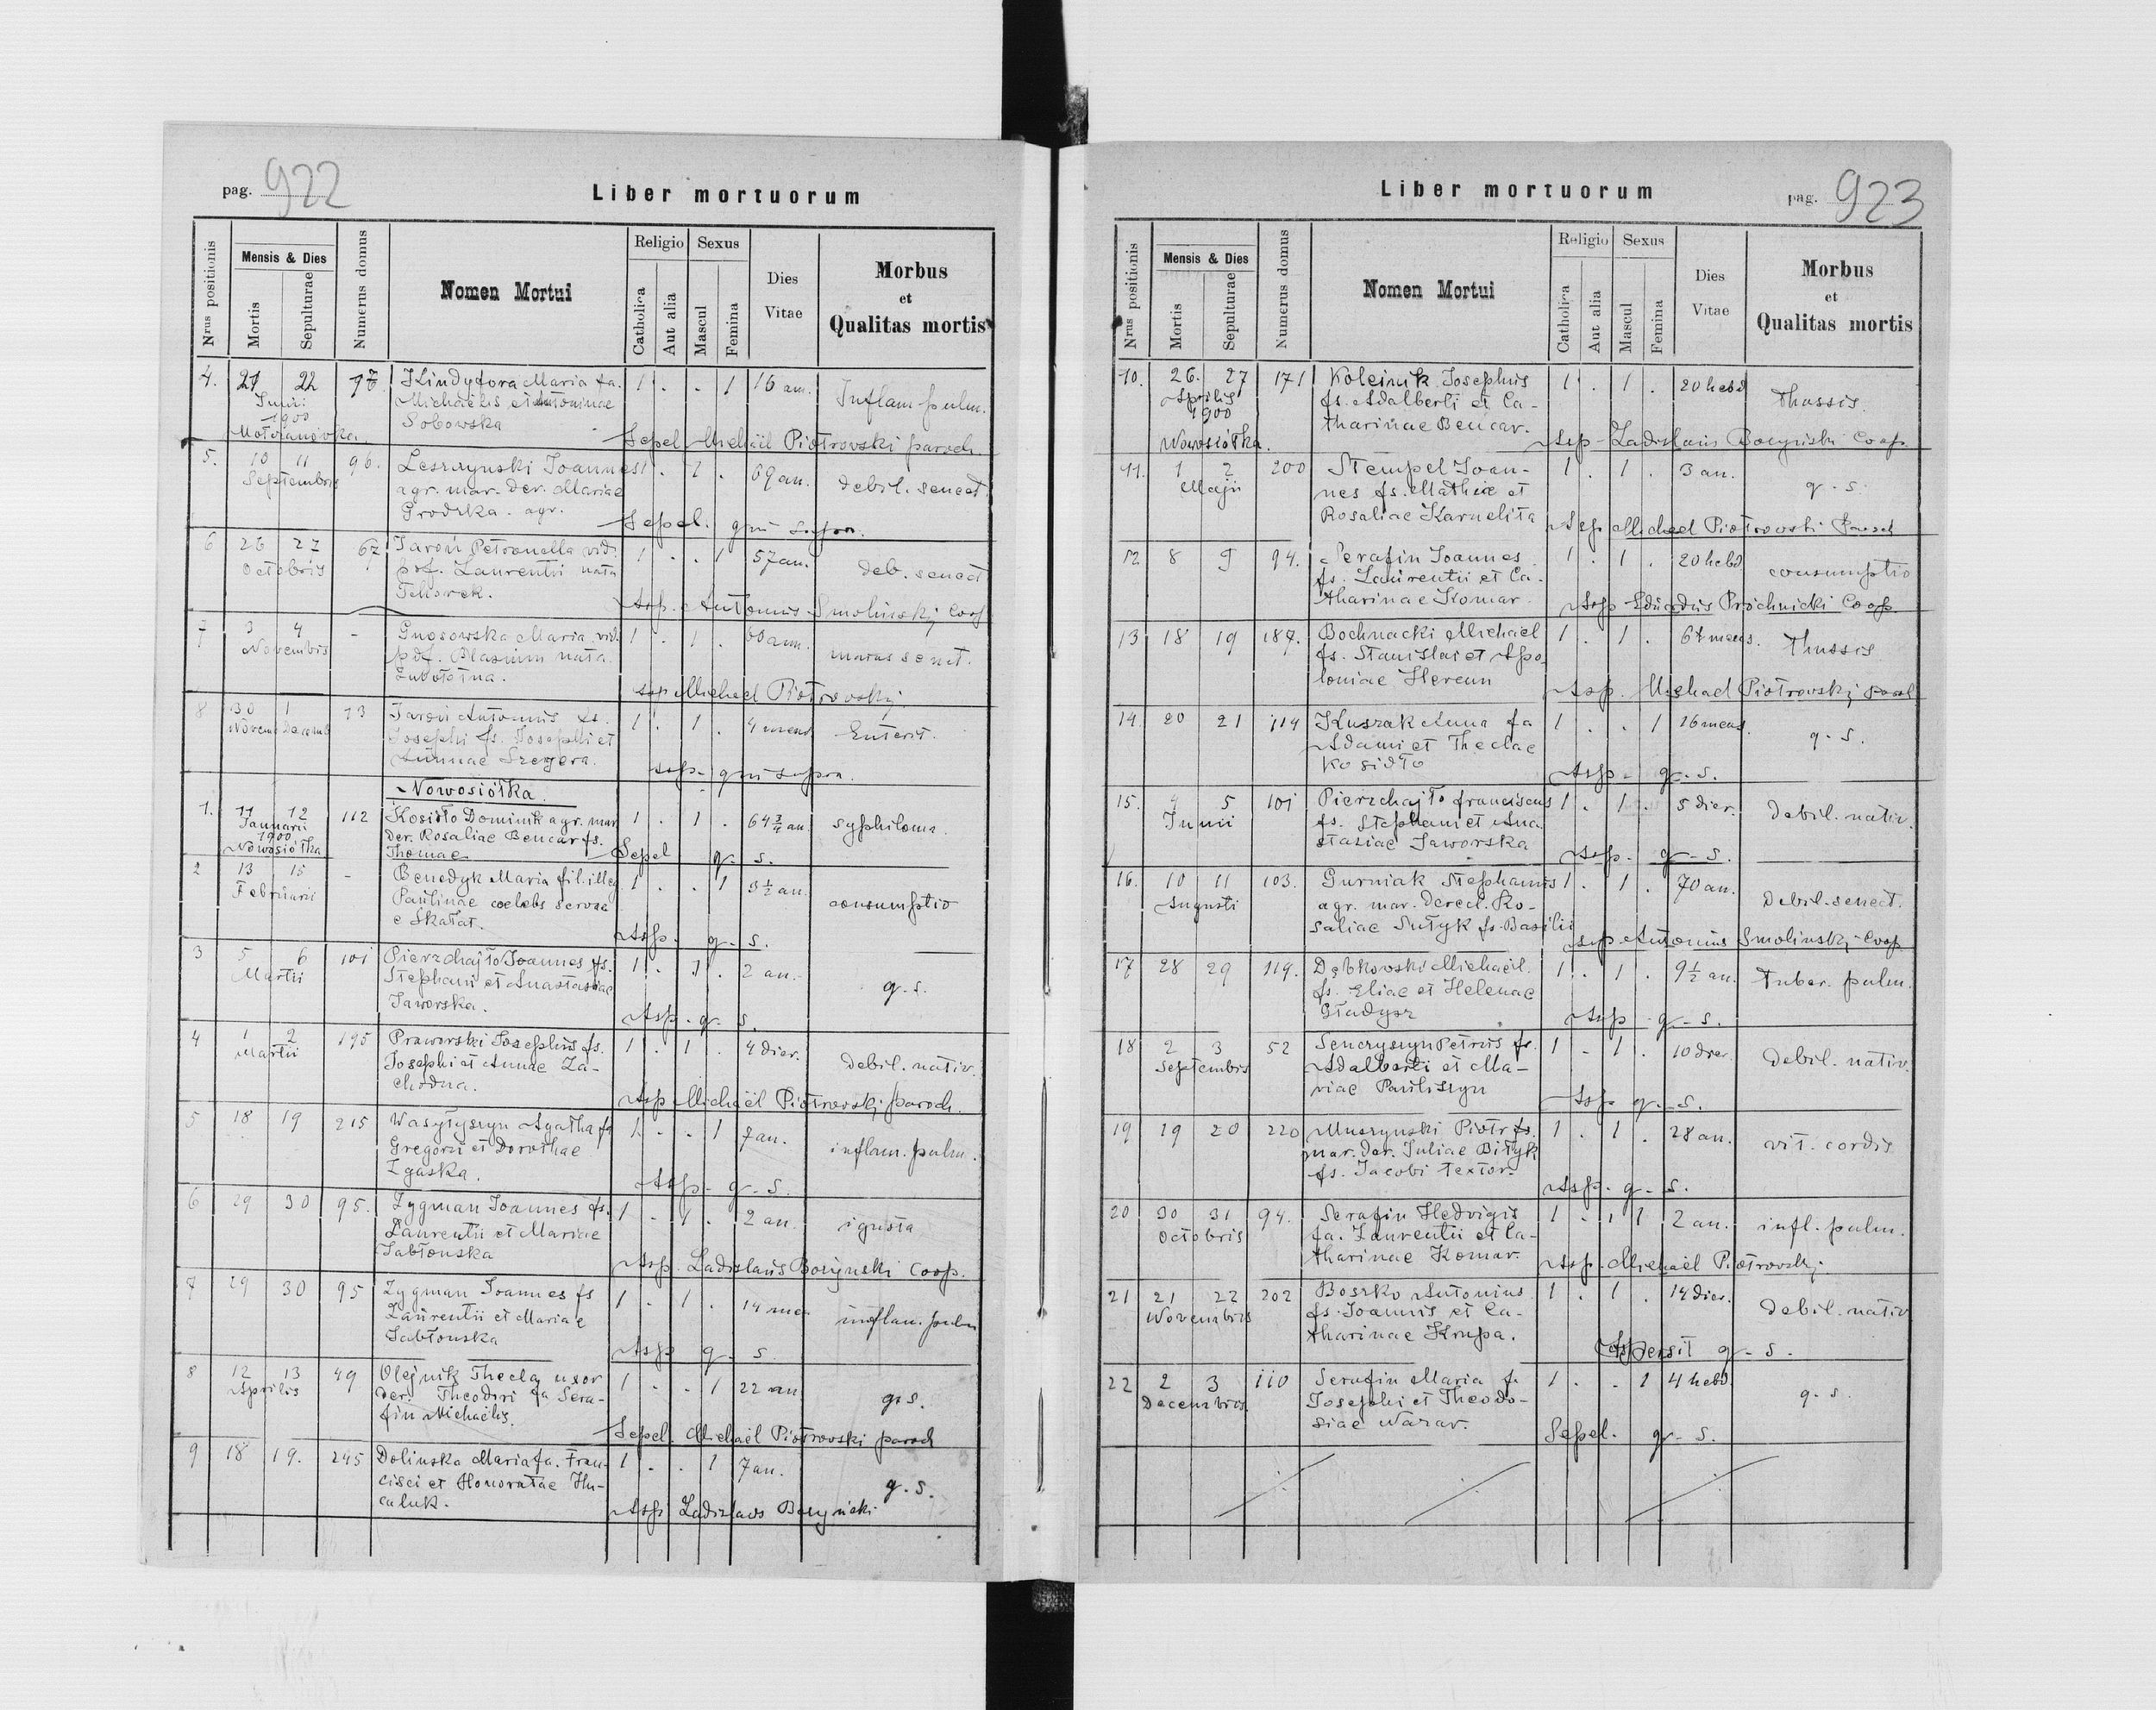 pag. 922
Liber mortuorum
Nrus positionis
Mensis & Dies
Mortis
Sepulturae
Numerus domus
Nomen Mortui
Religio
Catholica
Aut alia
Sexus
Mascul
Femina
Dies Vitae
Morbus
et
Qualitas mortis
4. 21 22 Maria fa. 1 . . 1 16 an. Inflam pulm.
Junii Michaëlis et Antoninae
1900 Sobowska
Sepel Michaël Piotrowski paroch.
5. 10 11 96. Leszczynski Joannes 1 . 1 . 69 an. debil. senect.
Septembris agr. mar. der. Mariae
Grodzka. agr.
Sepel. qui supra.
6 26 27 67 Jaroń Petronella vid. 1 . . 1 57 an. deb. senect
Octobris p. def. Laurentii nata
Asp. Antonius Smolinskj Coop
7 3 4 - Gnosowska Maria vid. 1 . 1 . 60 ann.
Novembris
asp Michael Piotrovskj
8 30 1 13 Jaroń Antonius fs. 1 . 1 . 4 mens Enterit.
Novem Decemb Josephi fs. Josephi et
Annae
asp. qui supra.
Nowosiółka.
1. 11 12 112 Kosidło Dominik agr. mar 1 . 1 . 64 3/4 an.
Januarii der. Rosaliae Bencar fs.
1900 Thomae
Nowosiółka Sepel q. s.
2 13 15 - Benedyk Maria fil. illeg 1 . . 1 3 1/2 an. consumptio
Februarii Paulinae coelebs servae
e Skałat.
Asp. q. s.
3 5 6 101 Pierzchajło Joannes fs. 1 . 1 . 2 an. q. s.
Martii Stephani et Anastasiae
Jaworska.
Asp. q. s.
4 1 2 195 Praworski Josephus fs. 1 . 1 . 4 dier. debil. nativ.
Martii Josephi et Annae Za-
chodna.
Asp Michaël Piotrovskj paroch.
5 18 19 215 Wasyłyszyn Agatha fa 1 . . 1 7 an. inflam. pulm.
Gregorii et Dorothae
Zgaska.
Asp. q. s.
6 29 30 95. Zygman Joannes fs. 1 . 1 . 2 an. ignota
Laurentii et Mariae
Jabłonska
Asp. Ladislaus Borynski Coop.
7 29 30 95 Zygman Joannes fs 1 . 1 . 14 men inflam. pulm
Laurentii et Mariae
Jabłonska
Asp q. s
8 12 13 49 Olejnik Thecla uxor 1 . . 1 22 an q. s.
Aprilis der. Theodori fa Sera-
fin Michaëlis.
Sepel. Michaël Piotrovski paroch
9 18 19. 245 Dolinska Maria fa. Fran- 1 . . 1 7 an. q. s.
cisci et Honoratae Hu-
culuk.
Asp Ladislaus
Liber mortuorum
pag. 923
Nrus positionis
Mensis & Dies
Mortis
Sepulturae
Numerus domus
Nomen Mortui
Religio
Catholica
Aut alia
Sexus
Mascul
Femina
Dies Vitae
Morbus
et
Qualitas mortis
10. 26. 27 171 Kolcinik Josephus 1 . 1 . 20 hebd Thussis.
Aprilis fs. Adalberti et Ca-
1900 tharinae Bencar.
Nowosiółka. Asp - Ladislaus Coop.
11. 1 2 200 Stempel Joan- 1 . 1 . 3 an. q. s.
Maji nes fs. Mathiae et
Rosaliae Karnelita
Asp Michael Piotrowski
12 8 9 94. Serafin Joannes 1 . 1 . 20 hebd consumptio
fs. Laurentii et Ca-
tharinae Komar.
Asp Eduardus Prochnicki Coop
13 18 19 187. Bochnacki Michael 1 . 1 . mens. Thussis
fs. Stanislai et Apo-
loniae
Asp. Michael Piotrovskj
14. 20 21 114 Kuszak Anna fa 1 . . 1 16 mens. q. s.
Adami et Theclae
Kosidło
Asp - q. s.
15. 4 5 101 Pierzchajło franciscus 1 . 1 . 5 dier. Debil. nativ.
Junii fs. Stephani et Ana
staziae Jaworska
Asp. q. s.
16. 10 11 103. Gurniak Stephanus 1 . 1 . 70 an. Debil. senect.
Augusti agr. mar. derel. Ro-
saliae Sułyk fs. Basilii
Asp. Antonius Smolinskj Coop
17 28 29 119. Dębkovski Michaël. 1 . 1 . 9 1/2 an. Tuber. pulm.
fs. Eliae et Helenae
Gładysz
Asp q. s.
18 2 3 52 Petrus fs. 1 . 1 . 10 dier. Debil. nativ.
Septembris Adalberti et Ma-
riae Pauliszyn
Asp q. s.
19 19 20 220 Muszynski Piotr fs. 1 . 1 . 28 an. vit. cordis
mar. der. Juliae Biłyk
fs. Jacobi textor.
Asp. q. s.
20 30 31 94. Serafin Hedvigis 1 . 1 1 2 an. infl. pulm.
Octobris fa. Laurentii et Ca-
tharinae Komar.
Asp. Michaël Piotrovskj.
21 21 22 202 Boszko Antonius 1 . 1 . 14 dier. Debil. nativ
Novembris fs. Joannis et Ca-
tharinae Krupa.
Aspersit q. s.
22 2 3 110 Serafin Maria f. 1 . . 1 4 hebd. q. s.
Decembris Josephi et Theodo-
siae Nazar.
Sepel. q. s.